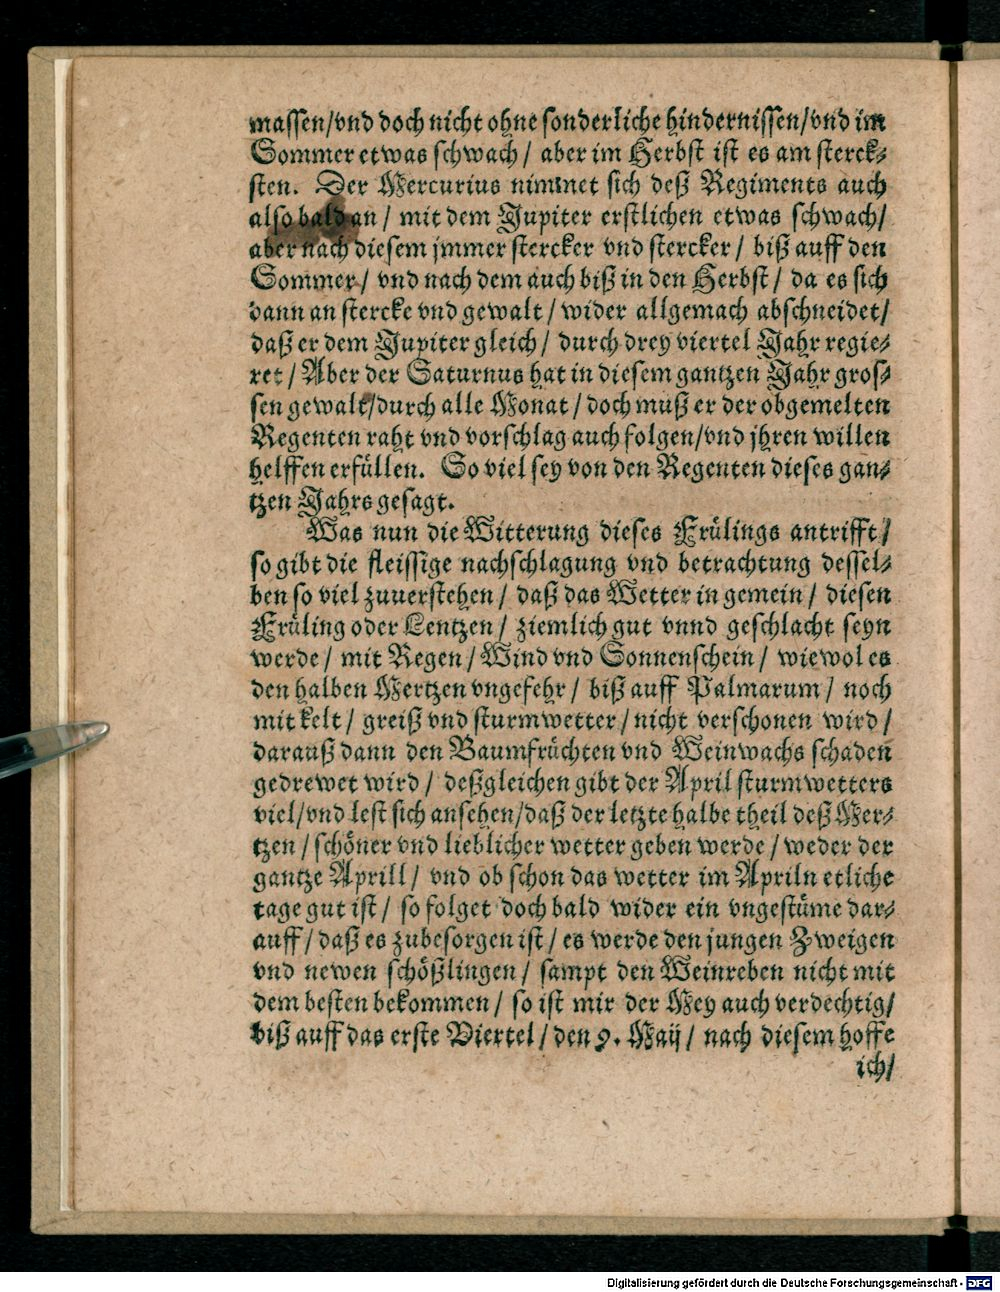 massen/vnd doch nicht ohne sonderliche hindernissen/vnd im
Sommer etwas schwach / aber im Herbst ist es am sterck⸗
sten. Der Mercurius nimmet sich deß Regiments auch
also bald an / mit dem Jupiter erstlichen etwas schwach/
aber nach diesem jmmer stercker vnd stercker / biß auff den
Sommer / vnd nach dem auch biß in den Herbst / da es sich
dann an stercke vnd gewalt / wider allgemach abschneidet/
daß er dem Jupiter gleich / durch drey viertel Jahr regie⸗
ret / Aber der Saturnus hat in diesem gantzen Jahr gros⸗
sen gewalt/durch alle Monat / doch muß er der obgemelten
Regenten raht vnd vorschlag auch folgen/vnd jhren willen
helffen erfüllen. So viel sey von den Regenten dieses gan⸗
tzen Jahrs gesagt.
Was nun die Witterung dieses Früelings antrifft/
so gibt die fleissige nachschlagung vnd betrachtung dessel⸗
ben so viel zuuerstehen / daß das Wetter in gemein / diesen
Früling oder Lentzen / ziemlich gut vnnd geschlacht seyn
werde / mit Regen / Wind vnd Sonnenschein / wiewol es
den halben Mertzen vngefehr / biß auff Palmarum / noch
mit kelt / greiß vnd sturmwetter / nicht verschonen wird /
darauß dann den Baumfrüchten vnd Weinwachs schaden
gedrewet wird / deßgleichen gibt der April sturmwetters
viel/vnd lest sich ansehen/daß der letzte halbe theil deß Mer⸗
tzen / schöner vnd lieblicher wetter geben werde / weder der
gantze Aprill / vnd ob schon das wetter im Apriln etliche
tage gut ist / so folget doch bald wider ein vngestüme dar⸗
auff / daß es zubesorgen ist / es werde den jungen Zweigen
vnd newen schößlingen / sampt den Weinreben nicht mit
dem besten bekommen / so ist mir der Mey auch verdechtig/
biß auff das erste Viertel / den 9. Maij / nach diesem hoffe
ich/
Digitalisierung gefördert durch die Deutsche Forschungsgemeinschaft - DFG